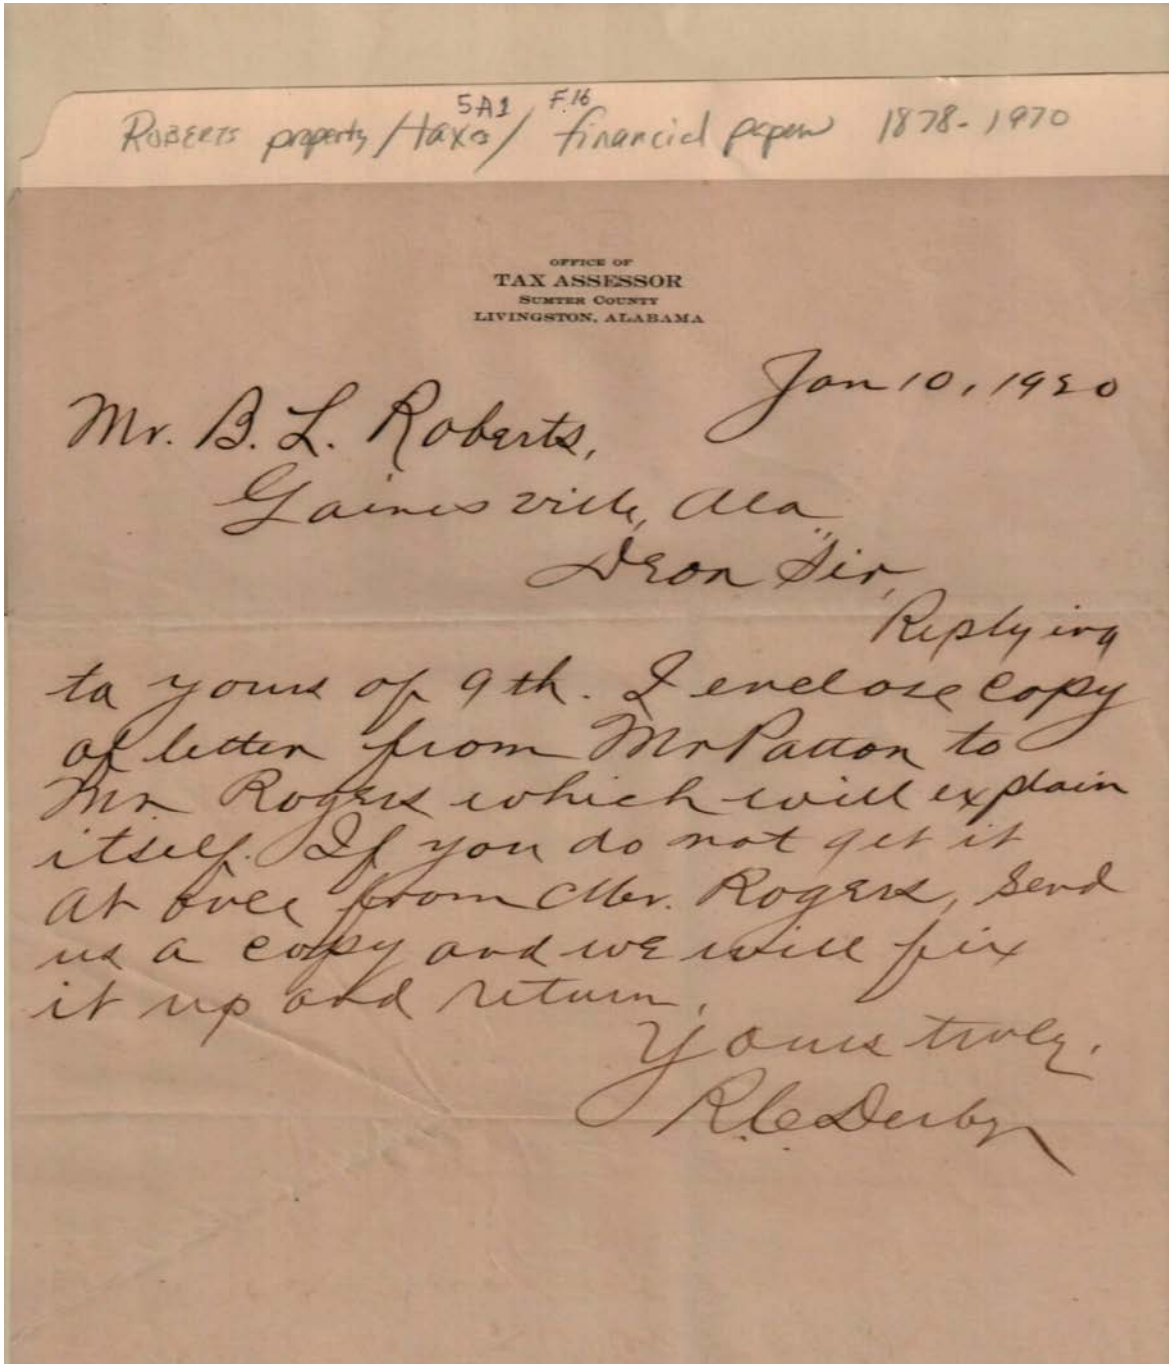 5A1 F.16
ROBERTS property / taxes / financial papers 1878-1970
OFFICE OF
TAX ASSESSOR
SUMTER COUNTY
LIVINGSTON, ALABAMA
Jan 10, 1920
Mr. B. L. Roberts,
Gainesville, Ala
Dear Sir,
Replying
to yours of 9th. I enclose copy
of letter from Mr Patton to
Mr. Rogers which will explain
itself. If you do not get it
at once from Mr. Rogers, send
us a copy and we will fix
it up and return.
Yours truly,
R.C. Derby